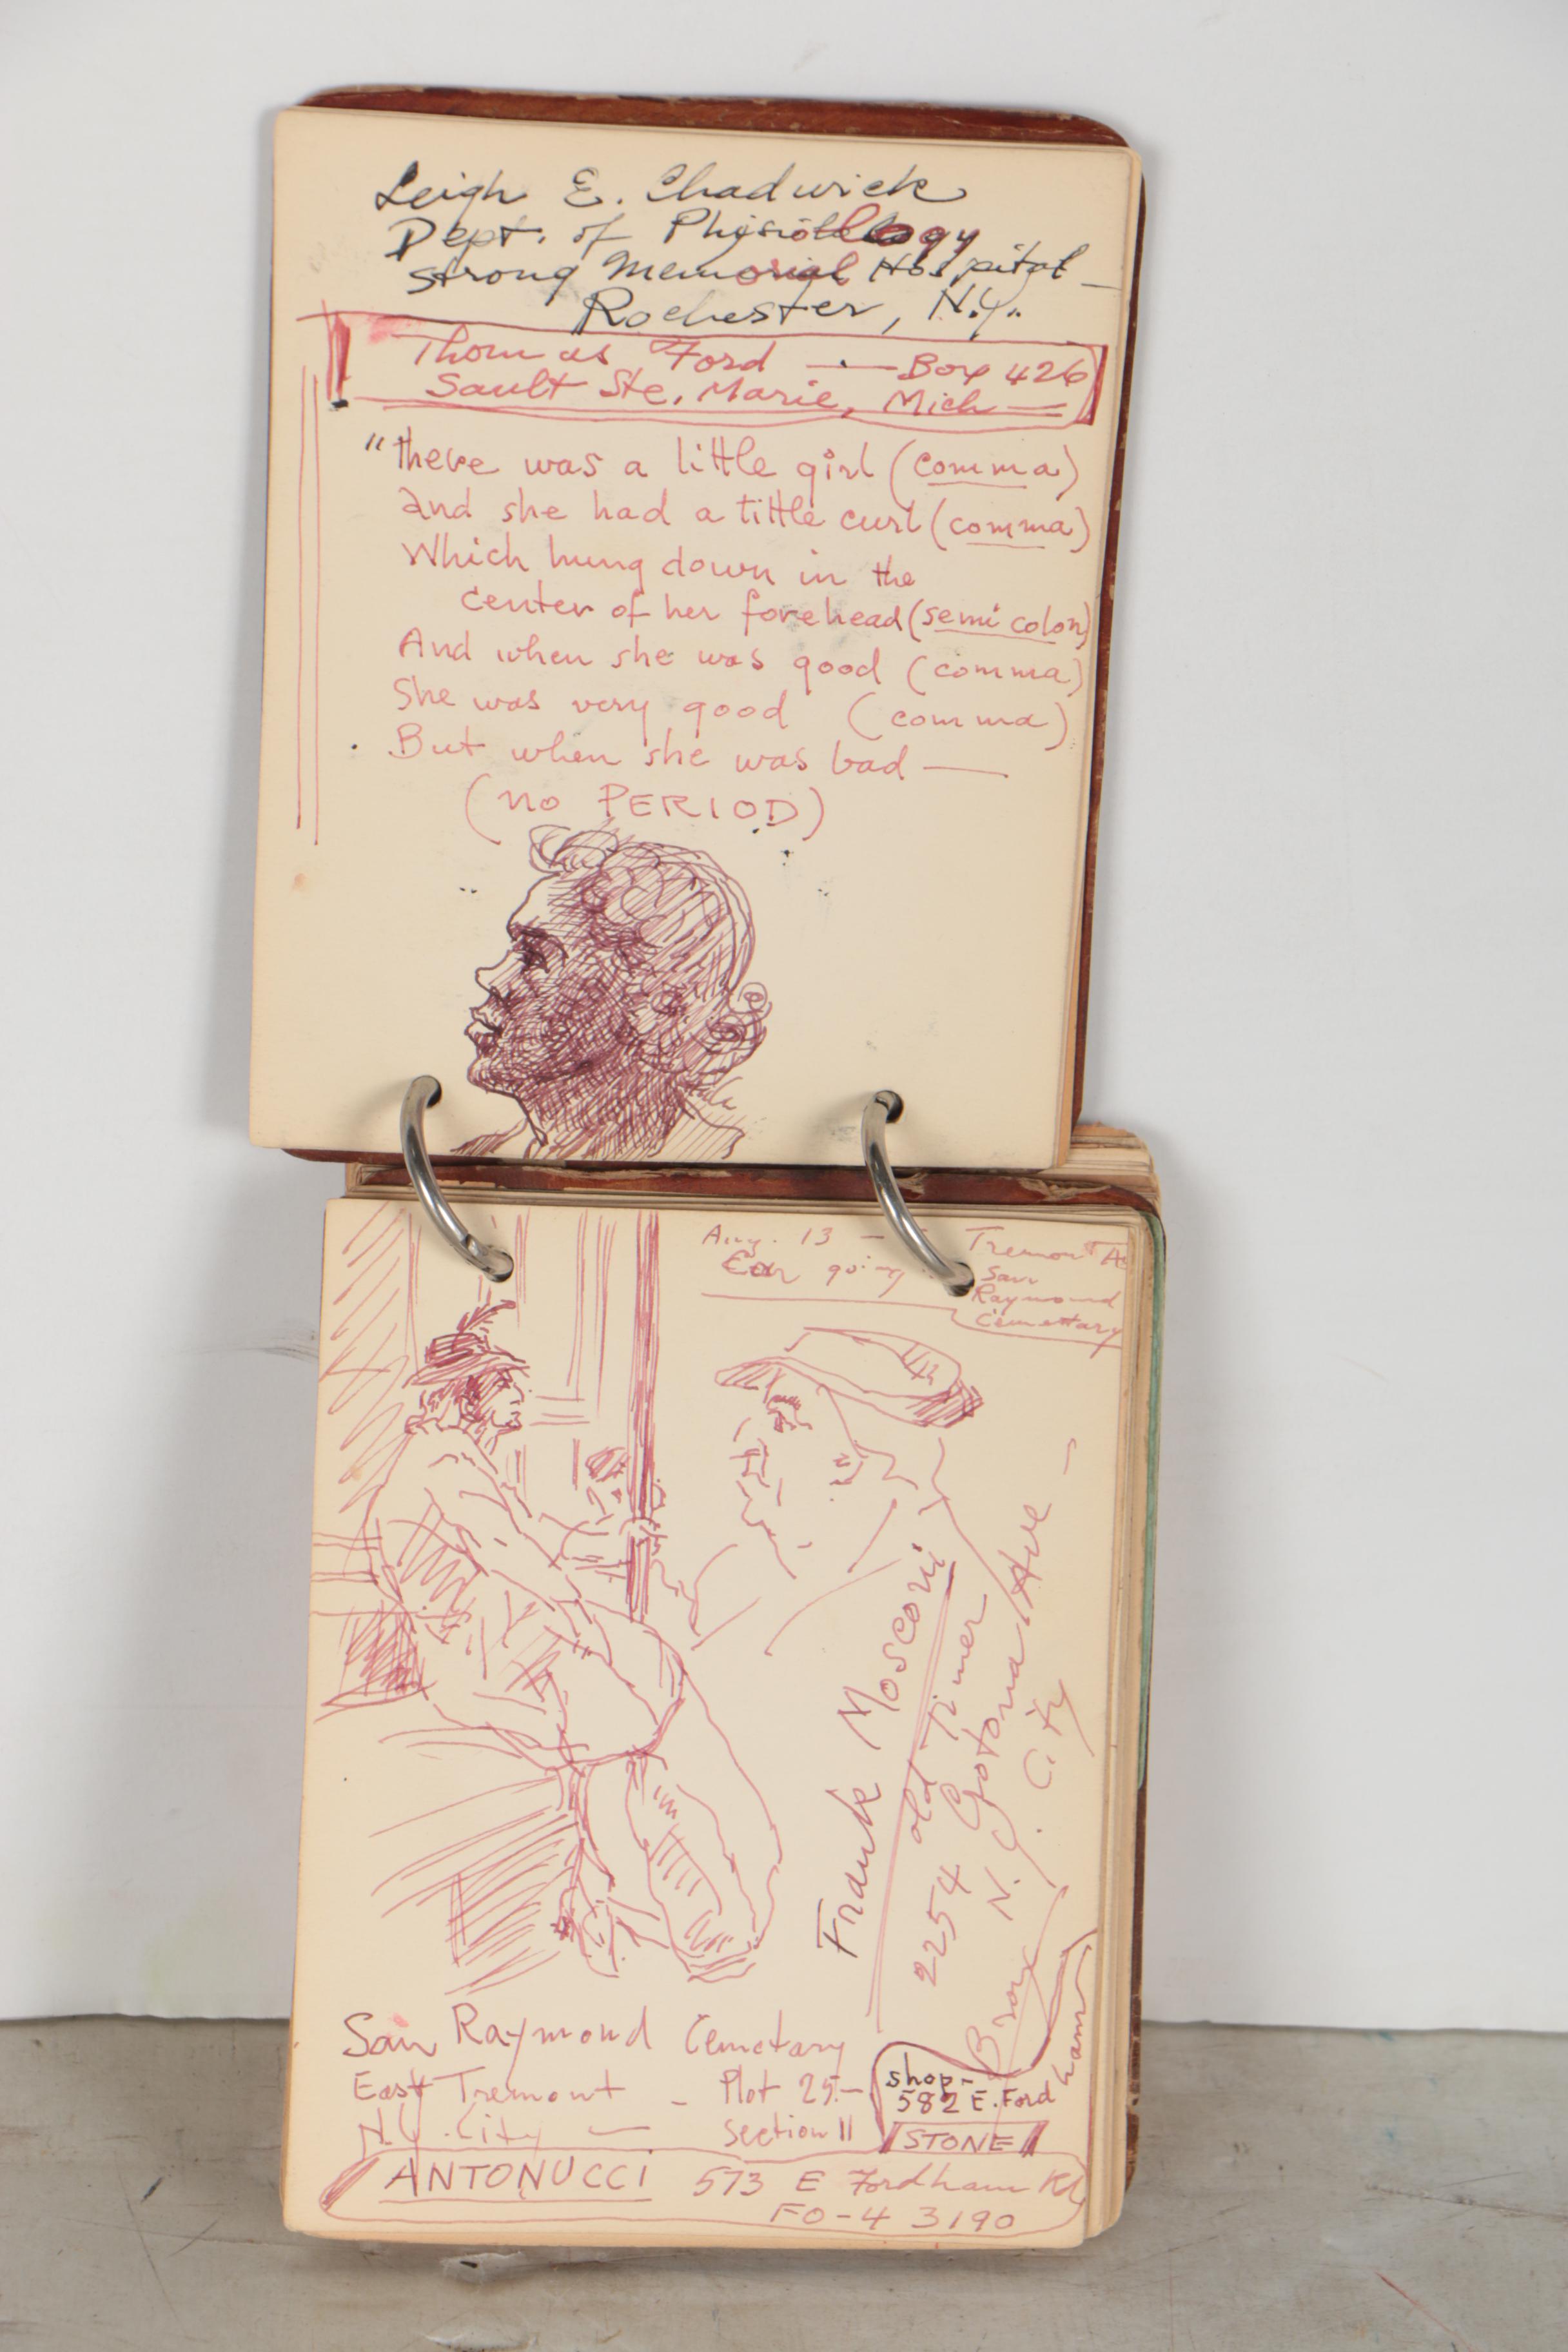 Leigh E. Chadwick
Dept. of Physiology
Strong Memorial Hospital —
Rochester, N.Y.
Thomas Ford — Box 426
Sault Ste. Marie, Mich —
"there was a little girl (comma)
and she had a little curl (comma)
Which hung down in the
center of her forehead (semi colon)
And when she was good (comma)
She was very good (comma)
But when she was bad —
(no PERIOD)
Aug. 13 —
Car going
Tremont A
San
Raymond
Cemetary
Frank Mosconi
old Timer
2254 Gotona Ave —
Bronx N.Y. City
San Raymond Cemetary
East Tremont - Plot 25 —
N.Y. City — Section 11
shop-
582 E. Fordham
STONE
ANTONUCCI 573 E Fordham Rd
FO-4 3190